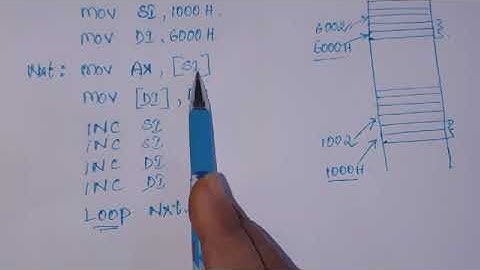 MOV SI, 1000H
MOV DI, 6000H
Nxt: MOV AX, [SI]
MOV [DI],
INC SI
INC SI
INC DI
INC DI
LOOP Nxt.
6002
6000H
1002
1000H